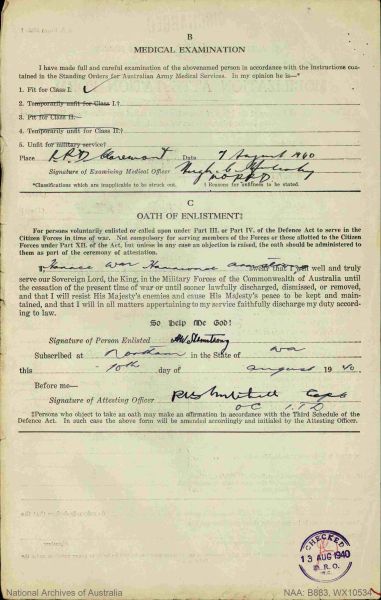 B
MEDICAL EXAMINATION
I have made full and careful examination of the abovenamed person in accordance with the instructions con-
tained in the Standing Orders for Australian Army Medical Services. In my opinion he is—*
1. Fit for Class I. ✓
2. Temporarily unfit for Class I.†
3. Fit for Class II.
4. Temporarily unfit for Class II.†
5. Unfit for military service.†
Place Claremont Date 7 August 1940
Signature of Examining Medical Officer
*Classifications which are inapplicable to be struck out. † Reasons for unfitness to be stated.
C
OATH OF ENLISTMENT‡
For persons voluntarily enlisted or called upon under Part III. or Part IV. of the Defence Act to serve in the
Citizen Forces in time of war. Not compulsory for serving members of the Forces or those allotted to the Citizen
Forces under Part XII. of the Act, but unless in any case an objection is raised, the oath should be administered
to them as part of the ceremony of attestation.
I, Horace War Armstrong swear that I will well and truly
serve our Sovereign Lord, the King, in the Military Forces of the Commonwealth of Australia until
the cessation of the present time of war or until sooner lawfully discharged, dismissed, or removed,
and that I will resist His Majesty's enemies and cause His Majesty's peace to be kept and main-
tained, and that I will in all matters appertaining to my service faithfully discharge my duty accord-
ing to law.
So help Me God!
Signature of Person Enlisted HW Armstrong
Subscribed at Northam in the State of WA
this 10th day of August 1940.
Before me—
Signature of Attesting Officer Capt
OC I.T.D
‡Persons who object to take an oath may make an affirmation in accordance with the Third Schedule of the
Defence Act. In such case the above form will be amended accordingly and initialed by the Attesting Officer.
CHECKED
13 AUG 1940
D.R.O.
National Archives of Australia
NAA: B883, WX10534